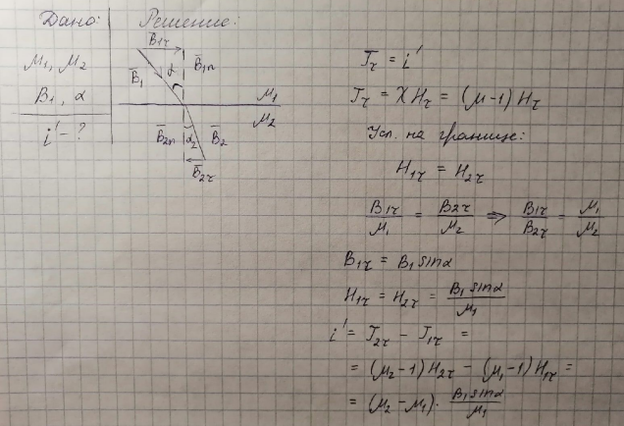 Дано:
μ₁, μ₂
B₁, α
i' - ?
Решение:
B̅₁τ
B̅₁
α
B̅₁n
μ₁
μ₂
B̅₂n
α₂
B̅₂
B̅₂τ
Jτ = i'
Jτ = χHτ = (μ-1)Hτ
Усл. на границе:
H₁τ = H₂τ
B₁τ/μ₁ = B₂τ/μ₂ ⇒ B₁τ/B₂τ = μ₁/μ₂
B₁τ = B₁ sinα
H₁τ = H₂τ = B₁ sinα/μ₁
i' = J₂τ - J₁τ =
= (μ₂-1)H₂τ - (μ₁-1)H₁τ =
= (μ₂-μ₁)· B₁ sinα/μ₁